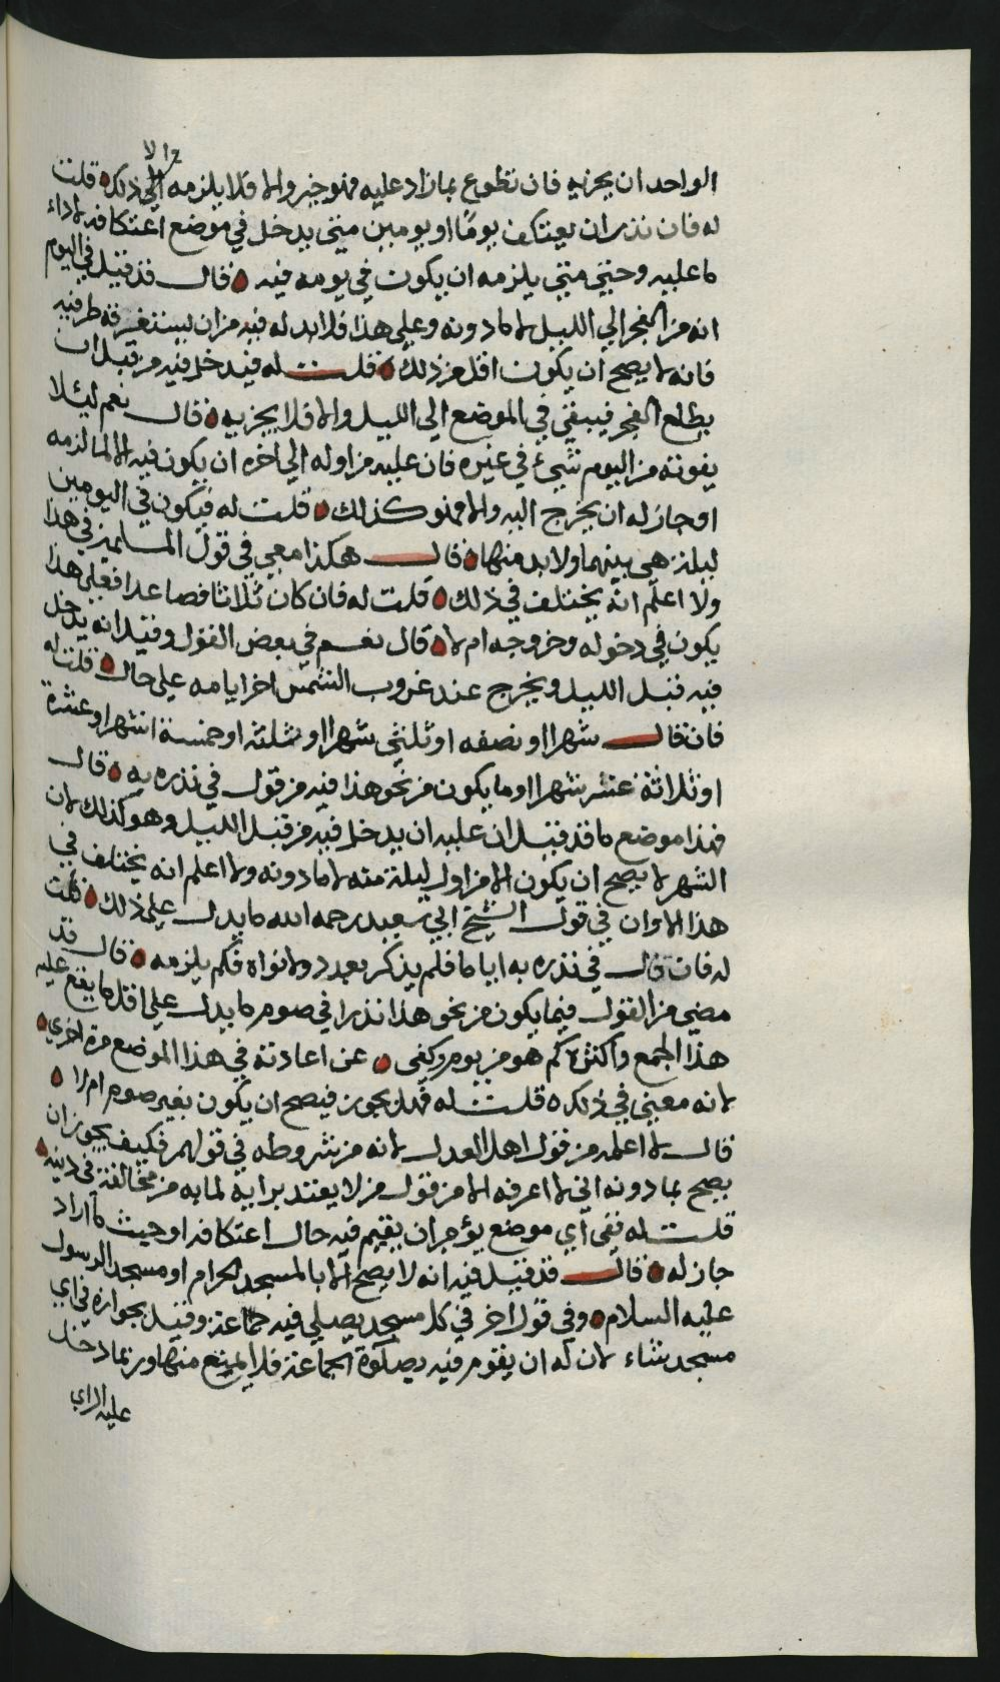 الا
الواحد ان يجزيه فان تطوع بما زاد عليه فهو خير والا فلا يلزمه الي ذلك قلت
له فان نذر ان يعتكف يومًا او يومين متي يدخل في موضع اعتكافه لاداء
ما عليه وحتي متي يلزمه ان يكون في يومه فيه قال قد قيل في اليوم
انه من الفجر الي الليل لا ما دونه وعلي هذا فلا بد له فيه من ان يستغرقه طرفيه
فانه لا يصح ان يكون اقل من ذلك قلت له فيدخل فيه من قبل ان
يطلع الفجر فيبقي في الموضع الي الليل والا فلا يجزيه قال نعم ليئلا
يفوته من اليوم شيء في غيره فان عليه من اوله الي اخره ان يكون فيه الا لما لزمه
او جاز له ان يخرج اليه والا فهو كذلك قلت له فيكون في اليومين
ليلة هي بينهما ولا بد منها قال هكذا معي في قول المسلمين في هذا
ولا اعلم انه يختلف في ذلك قلت له فان كان ثلاثا فصاعدا فعلي هذا
يكون في دخوله وخروجه ام لا قال نعم في بعض القول وقيل انه يدخل
فيه قبل الليل ويخرج عند غروب الشمس اخر ايامه علي حال قلت له
فان قال شهرا او نصفه او ثلثي شهرا او ثلثه او خمسة اشهر او عشرة
او ثلاثة عشر شهرا او ما يكون من نحو هذا فيه من قول في نذره به قال
فهذا موضع ما قد قيل ان عليه ان يدخل فيه من قبل الليل وهو كذلك لان
الشهر لا يصح ان يكون الا من اول ليلة منه لا ما دونه ولا اعلم انه يختلف في
هذا الا وان في قول الشيخ ابي سعيد رحمه الله ما يدل علي ذلك قلت
له فان قال في نذره به اياما فلم يذكر بعدد ولا نواه فكم يلزمه قال قد
مضي من القول فيما يكون من نحو هذا نذرا في صوم ما يدل علي اقل ما يقع عليه
هذا الجمع واكثره كم هو من يوم وكفي عن اعادته في هذا الموضع مرة اخري
لانه معني في ذلك قلت له فهل يجوز فيصح ان يكون بغير صوم ام لا
قال لا اعلمه من قول اهل العدل لانه من شروطه في قولهم فكيف يجوز ان
يصح بما دونه اني لا اعرفه الا من قول من لا يعتد برايه لما به من مخالفة في دينه
قلت له ففي اي موضع يؤمر ان يقيم فيه حال اعتكافه او حيث ما اراد
جاز له قال قد قيل فيه انه لا يصح الا بالمسجد الحرام او مسجد الرسول
عليه السلام وفي قول اخر في كل مسجد يصلي فيه جماعة وقيل بجوازه في اي
مسجد شاء لان له ان يقوم فيه بصلوة الجماعة فلا يمنع منها وربما دخل
عليه الراي